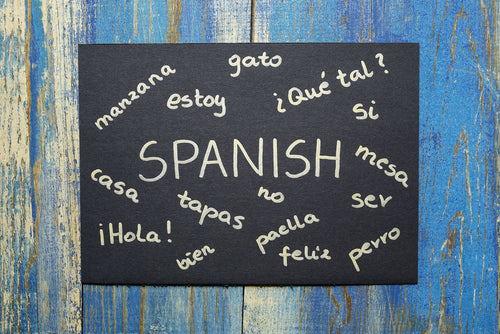 gato
manzana
¿Qué tal?
estoy
si
SPANISH
mesa
casa
no
tapas
ser
¡Hola!
paella
perro
bien
feliz